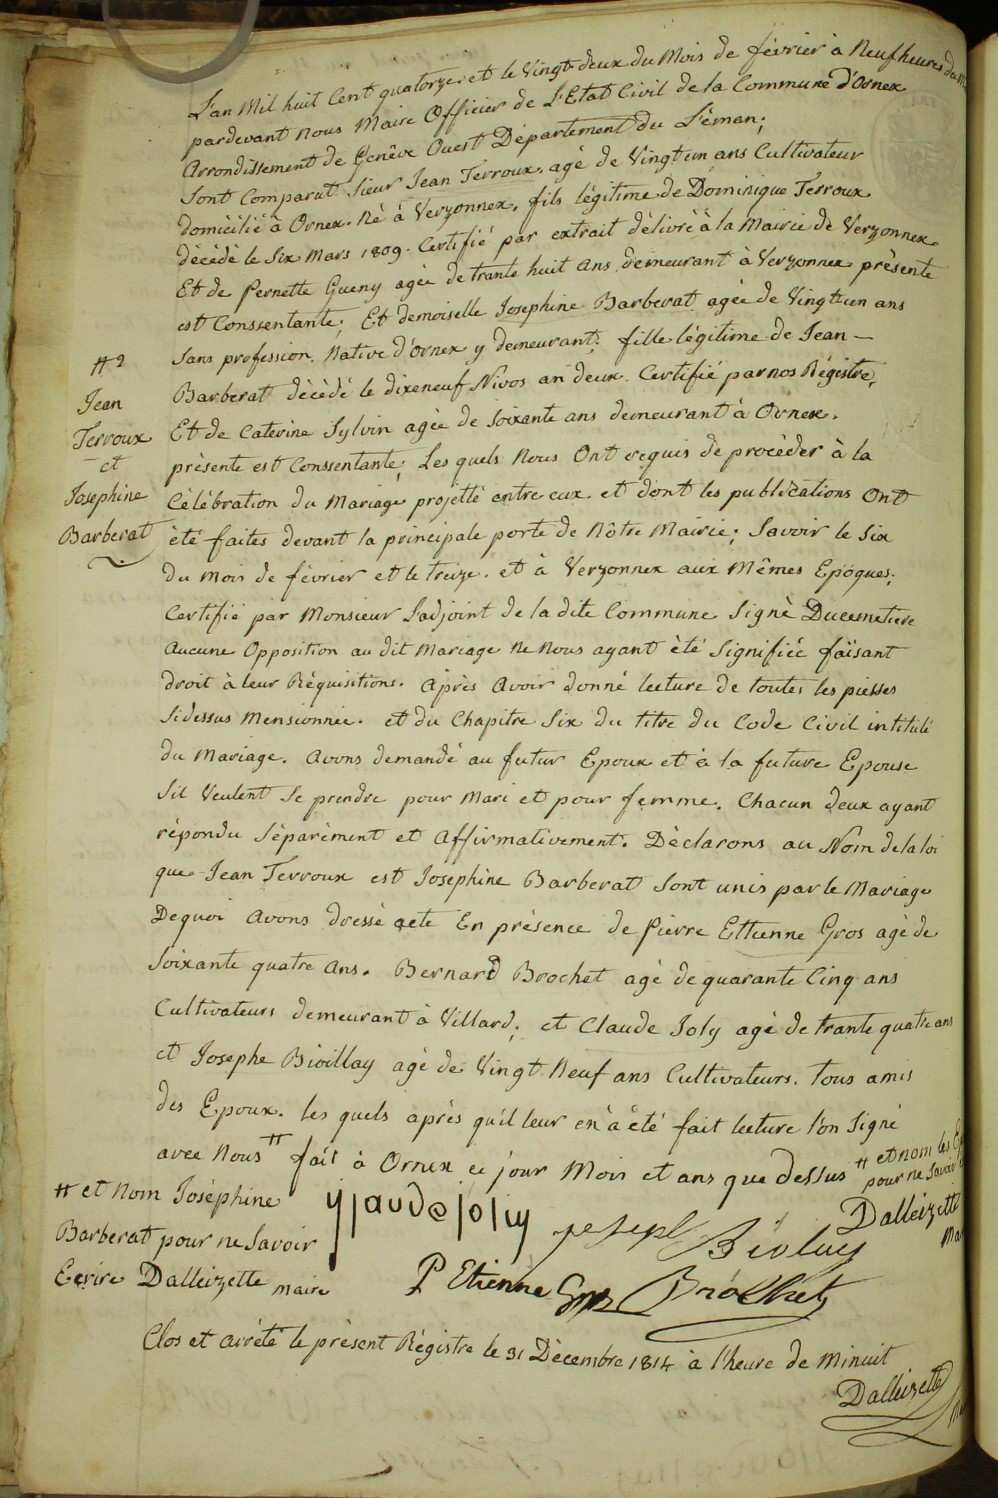 L'an Mil huit Cent quatorze et le Vingt deux du Mois de février à Neuf heures du
pardevant Nous Maire Officier de L'Etat Civil de la Commune d'Ornex
Arrondissement de Genêve Ouest Département du Léman;
Sont Comparut Sieur Jean Terroux. agé de Vingt un ans Cultivateur
domicilié à Ornex. Né à Verzonnex, fils légitime de Dominique Terroux
décédé le Six Mars 1809. Certifié par extrait délivré à la Mairie de Verzonnex
Et de Pernette Gueny agée de trante huit ans demeurant à Verzonnex présente
est Conssentante; Et demoiselle Josephine Barberat agée de Vingt un ans
Sans profession. Native d'Ornex y demeurant; fille légitime de Jean —
Barberat décédé le dixeneuf Nivos an deux. Certifié par nos Régistre,
Et de Caterine Sylvin agée de Soixante ans demeurant à Ornex.
présente est Conssentante; Les quels Nous Ont requis de procéder à la
Célébration du Mariage projetté entre eux. et dont les publications Ont
été faites devant la principale porte de Nôtre Mairie; Savoir le Six
du Mois de février et le treize. et à Verzonnex aux Mêmes Epoques;
Certifié par Monsieur Ladjoint de la dite Commune Signé Ducemetiere
Aucune Opposition au dit Mariage Ne Nous ayant été Signifiée faisant
droit à leur Réquisitions. Après Avoir donné lecture de toutes les piesses
Sidessus Mensionnée. et du Chapitre Six du titre du Code Civil intitulé
du Mariage. Avons demandé au futur Epoux et à la future Epouse
Sil Veulent Se prendre pour Mari et pour femme. Chacun deux ayant
répondu Séparément et Affirmativement. Déclarons au Nom de la loi
que Jean Terroux est Josephine Barberat Sont unis par le Mariage
De quoi Avons dressé acte En présence de Pierre Ettienne Gros agé de
Soixante quatre Ans. Bernard Brochet agé de quarante Cinq ans
Cultivateurs demeurant à Villard; et Claude Joly agé de trante quatre ans
et Josephe Bioillay agé de Vingt Neuf ans Cultivateurs. tous amis
des Epoux. les quels après qu'il leur en à été fait lecture l'on Signé
avec Nous # fait à Ornex ce jour Mois et ans que dessus # et nom les
pour ne Savoir
# 2
Jean
Terroux
et
Josephine
Barberat
# et Nom Joséphine
Barberat pour ne Savoir
Ecrire Dalleizette maire
Claude joliy
joseph Bioluy
Dalleizette
P Etienne Gros Brochet
Clos et arrété le présent Régistre le 31 Décembre 1814 à l'heure de Minuit
Dalleizette